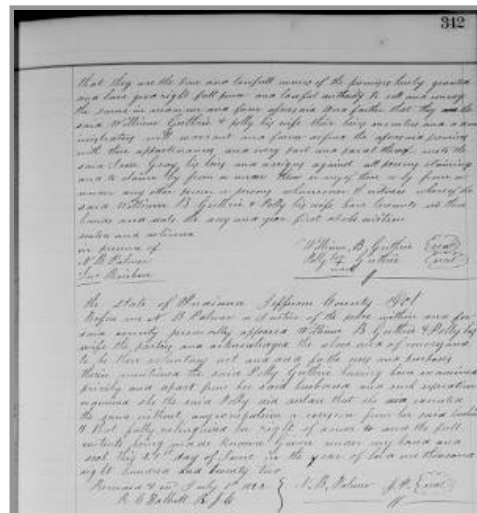 342
that they are the true and lawfull owners of the premises hereby granted
and have good right full power and lawful authority to sell and convey
the same in manner and form aforesaid And further that they the
said William Guthrie & Polly his wife their heirs executors and adm
inistrators will warrant and forever defend the aforesaid premises
with their appurtenances and every part and parcel thereof unto the
said Jesse Gray his heirs and assigns against all persons claiming
or to claim by from or under them or any of them or by from or
under any other person or persons whomsoever In witness whereof the
said William B Guthrie & Polly his wife have hereunto set their
hands and seals the day and year first above written
sealed and delivered
in presence of
William, B, Guthrie (seal)
N. B. Palmer
Polly her + Guthrie (seal)
mark
the State of Indiana Jefferson County Sct
Before me N B Palmer a Justice of the peace within and for
said county personally appeared William B Guthrie & Polly his
wife the parties and acknowledged the above deed of conveyance
to be their voluntary act and deed for the uses and purposes
therein mentioned the said Polly Guthrie having been examined
privily and apart from her said husband and such seperation
enquired she the said Polly did declare that she executed
the same without any compulsion or coercion from her said husband
fully relinquished her right of dower to and the full
contents being made known Given under my hand and
seal this 29th day of June in the year of Lord one thousand
eight hundred and twenty two
Received July 1st 1822
N. B, Palmer J. P. (seal)
R. C Talbott R. J. C